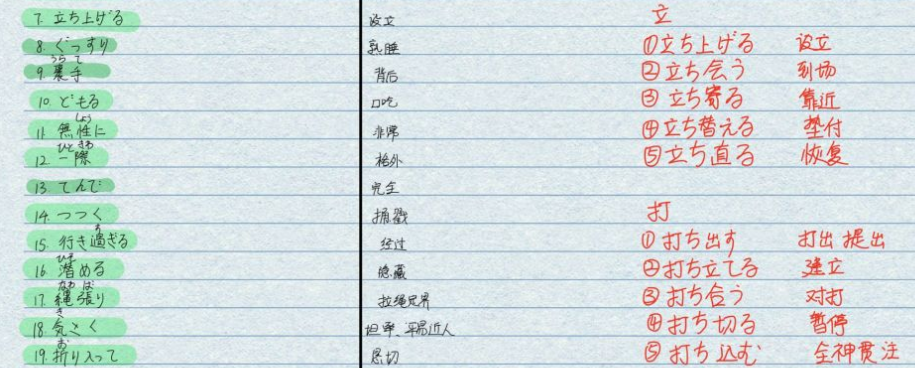 7. 立ち上げる 设立 立
8. ぐっすり 熟睡 ①立ち上げる 设立
うらて
9. 裏手 背后 ②立ち会う 到场
10. どもる 口吃 ③立ち寄る 靠近
しょう
11. 無性に 非常 ④立ち替える 垫付
ひときわ
12. 一際 格外 ⑤立ち直る 恢复
13. てんで 完全
14. つつく 捅戳 打
す
15. 行き過ぎる 经过 ①打ち出す 打出 提出
ひそ
16. 潜める 隐藏 ②打ち立てる 建立
なわ ば
17. 縄張り 拉绳定界 ③打ち合う 对打
き
18. 気さく 坦率、平易近人 ④打ち切る 暂停
お
19. 折り入って 恳切 ⑤打ち込む 全神贯注